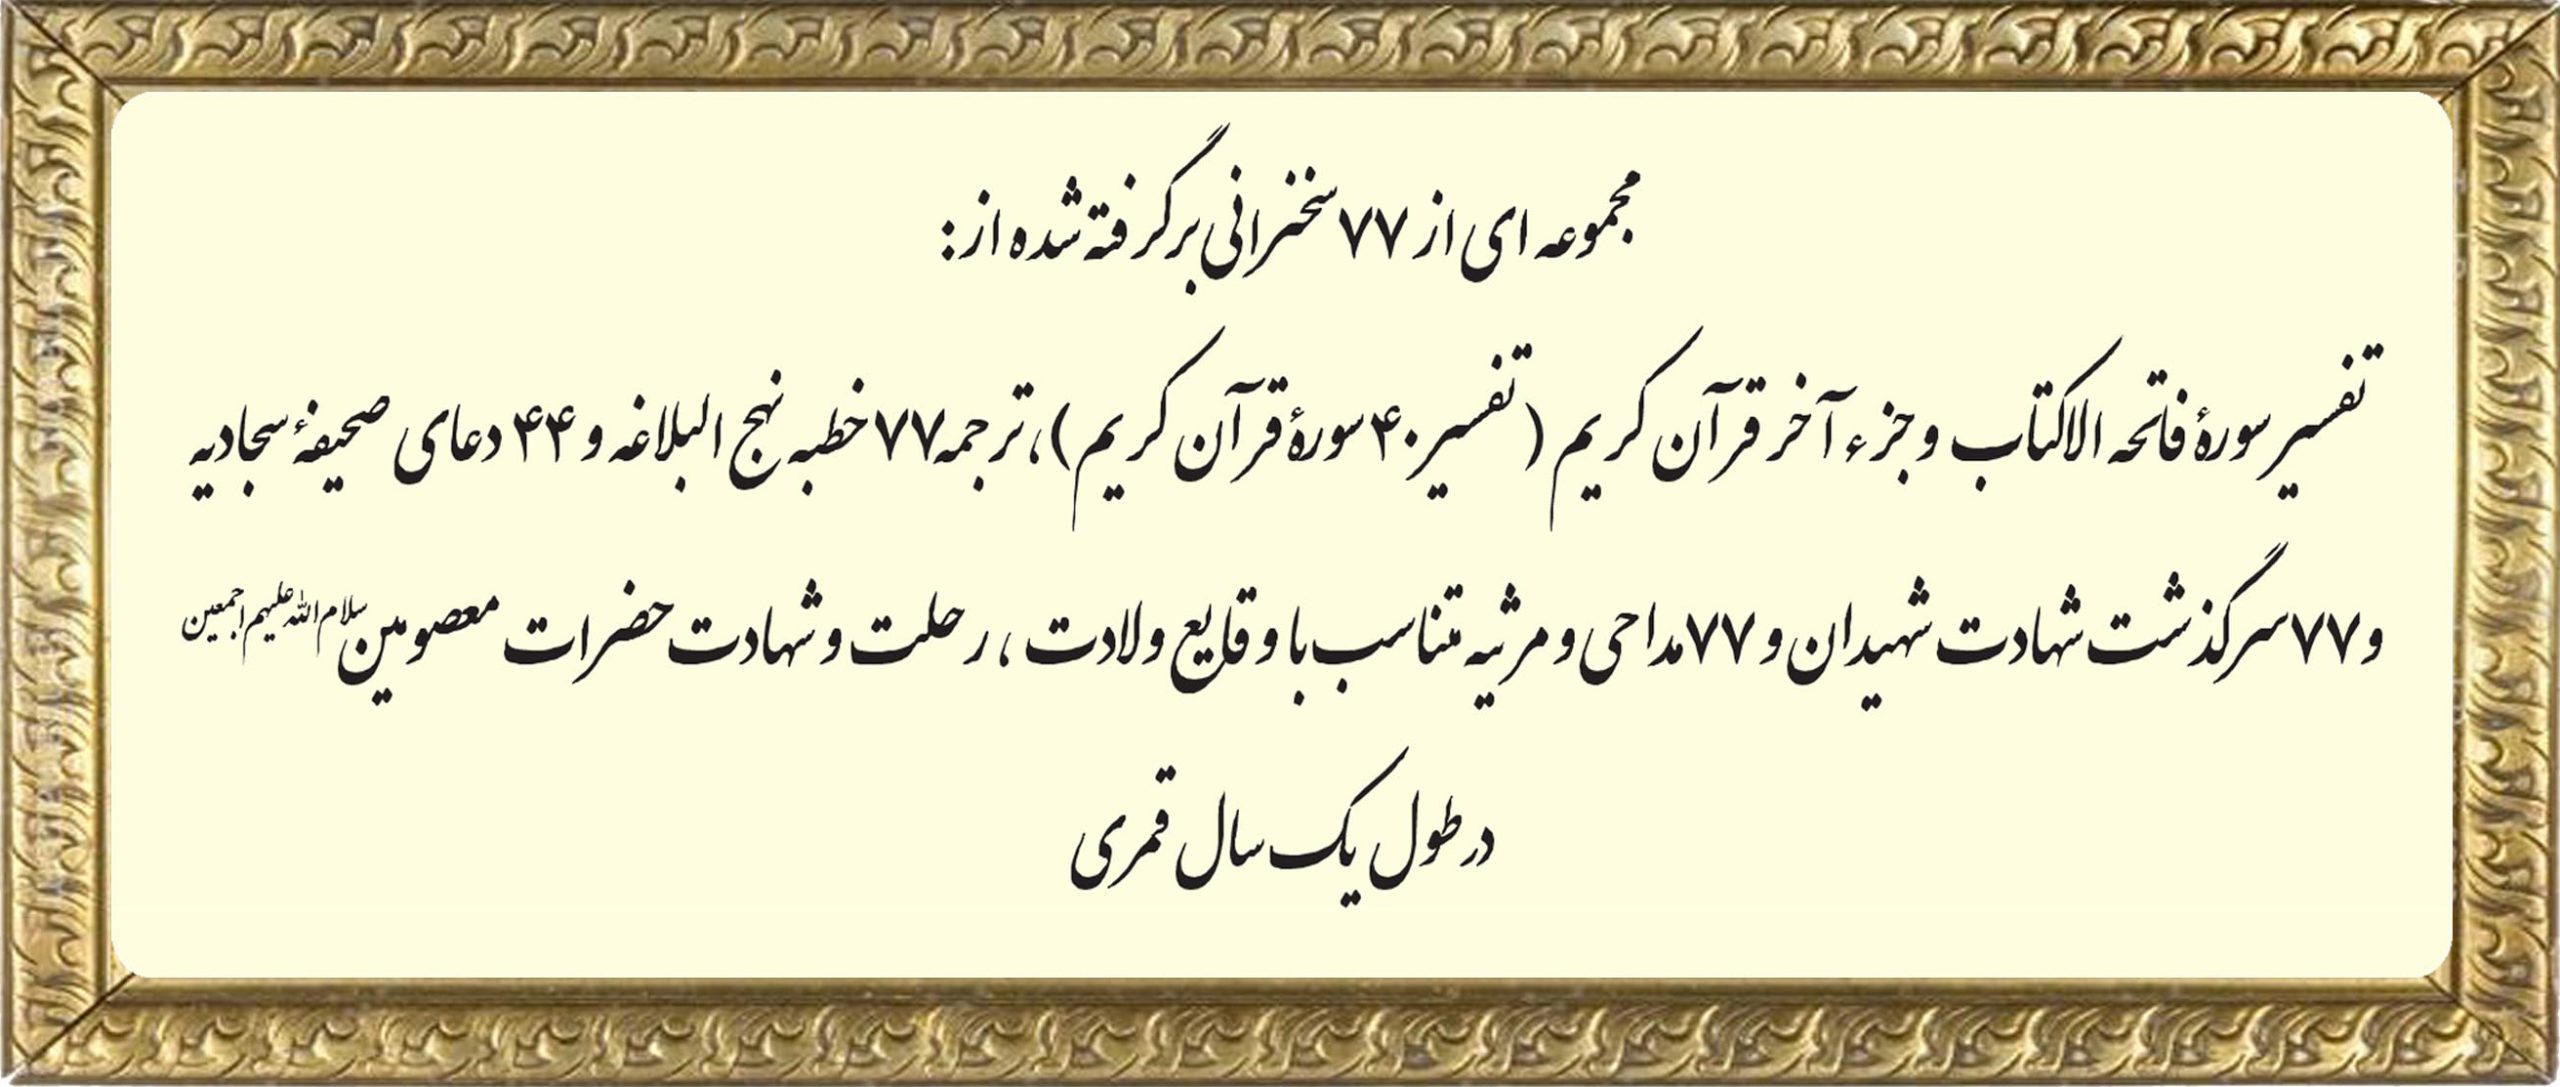 مجموعه ای از ۷۷ سخنرانی برگرفته شده از:
تفسیر سورهٔ فاتحه الاکتاب و جزء آخر قرآن کریم (تفسیر ۴۰ سورهٔ قرآن کریم)، ترجمه ۷۷ خطبه نهج البلاغه و ۴۴ دعای صحیفهٔ سجادیه
و ۷۷ سرگذشت شهادت شهیدان و ۷۷ مداحی و مرثیه متناسب با وقایع ولادت، رحلت و شهادت حضرات معصومین سلام الله علیهم اجمعین
در طول یک سال قمری